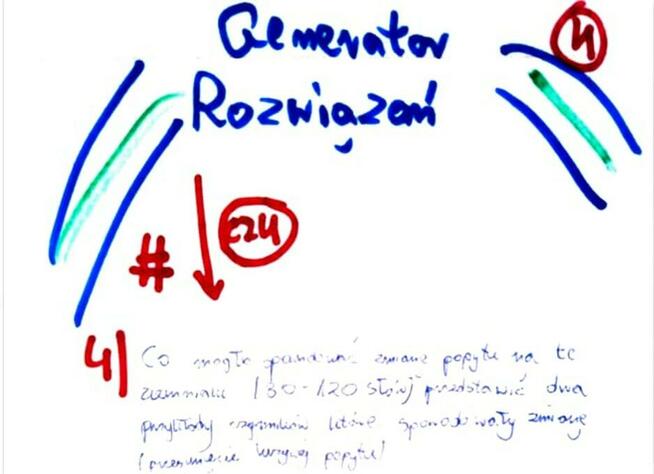 Generator
4
Rozwiązań
#
CZ4
4) Co mogło spowodować zmianę popytu na te
ziemniaki (80-120 słów) przedstawić dwa
przykłady czynników które spowodowały zmianę
(przesunięcie krzywej popytu)